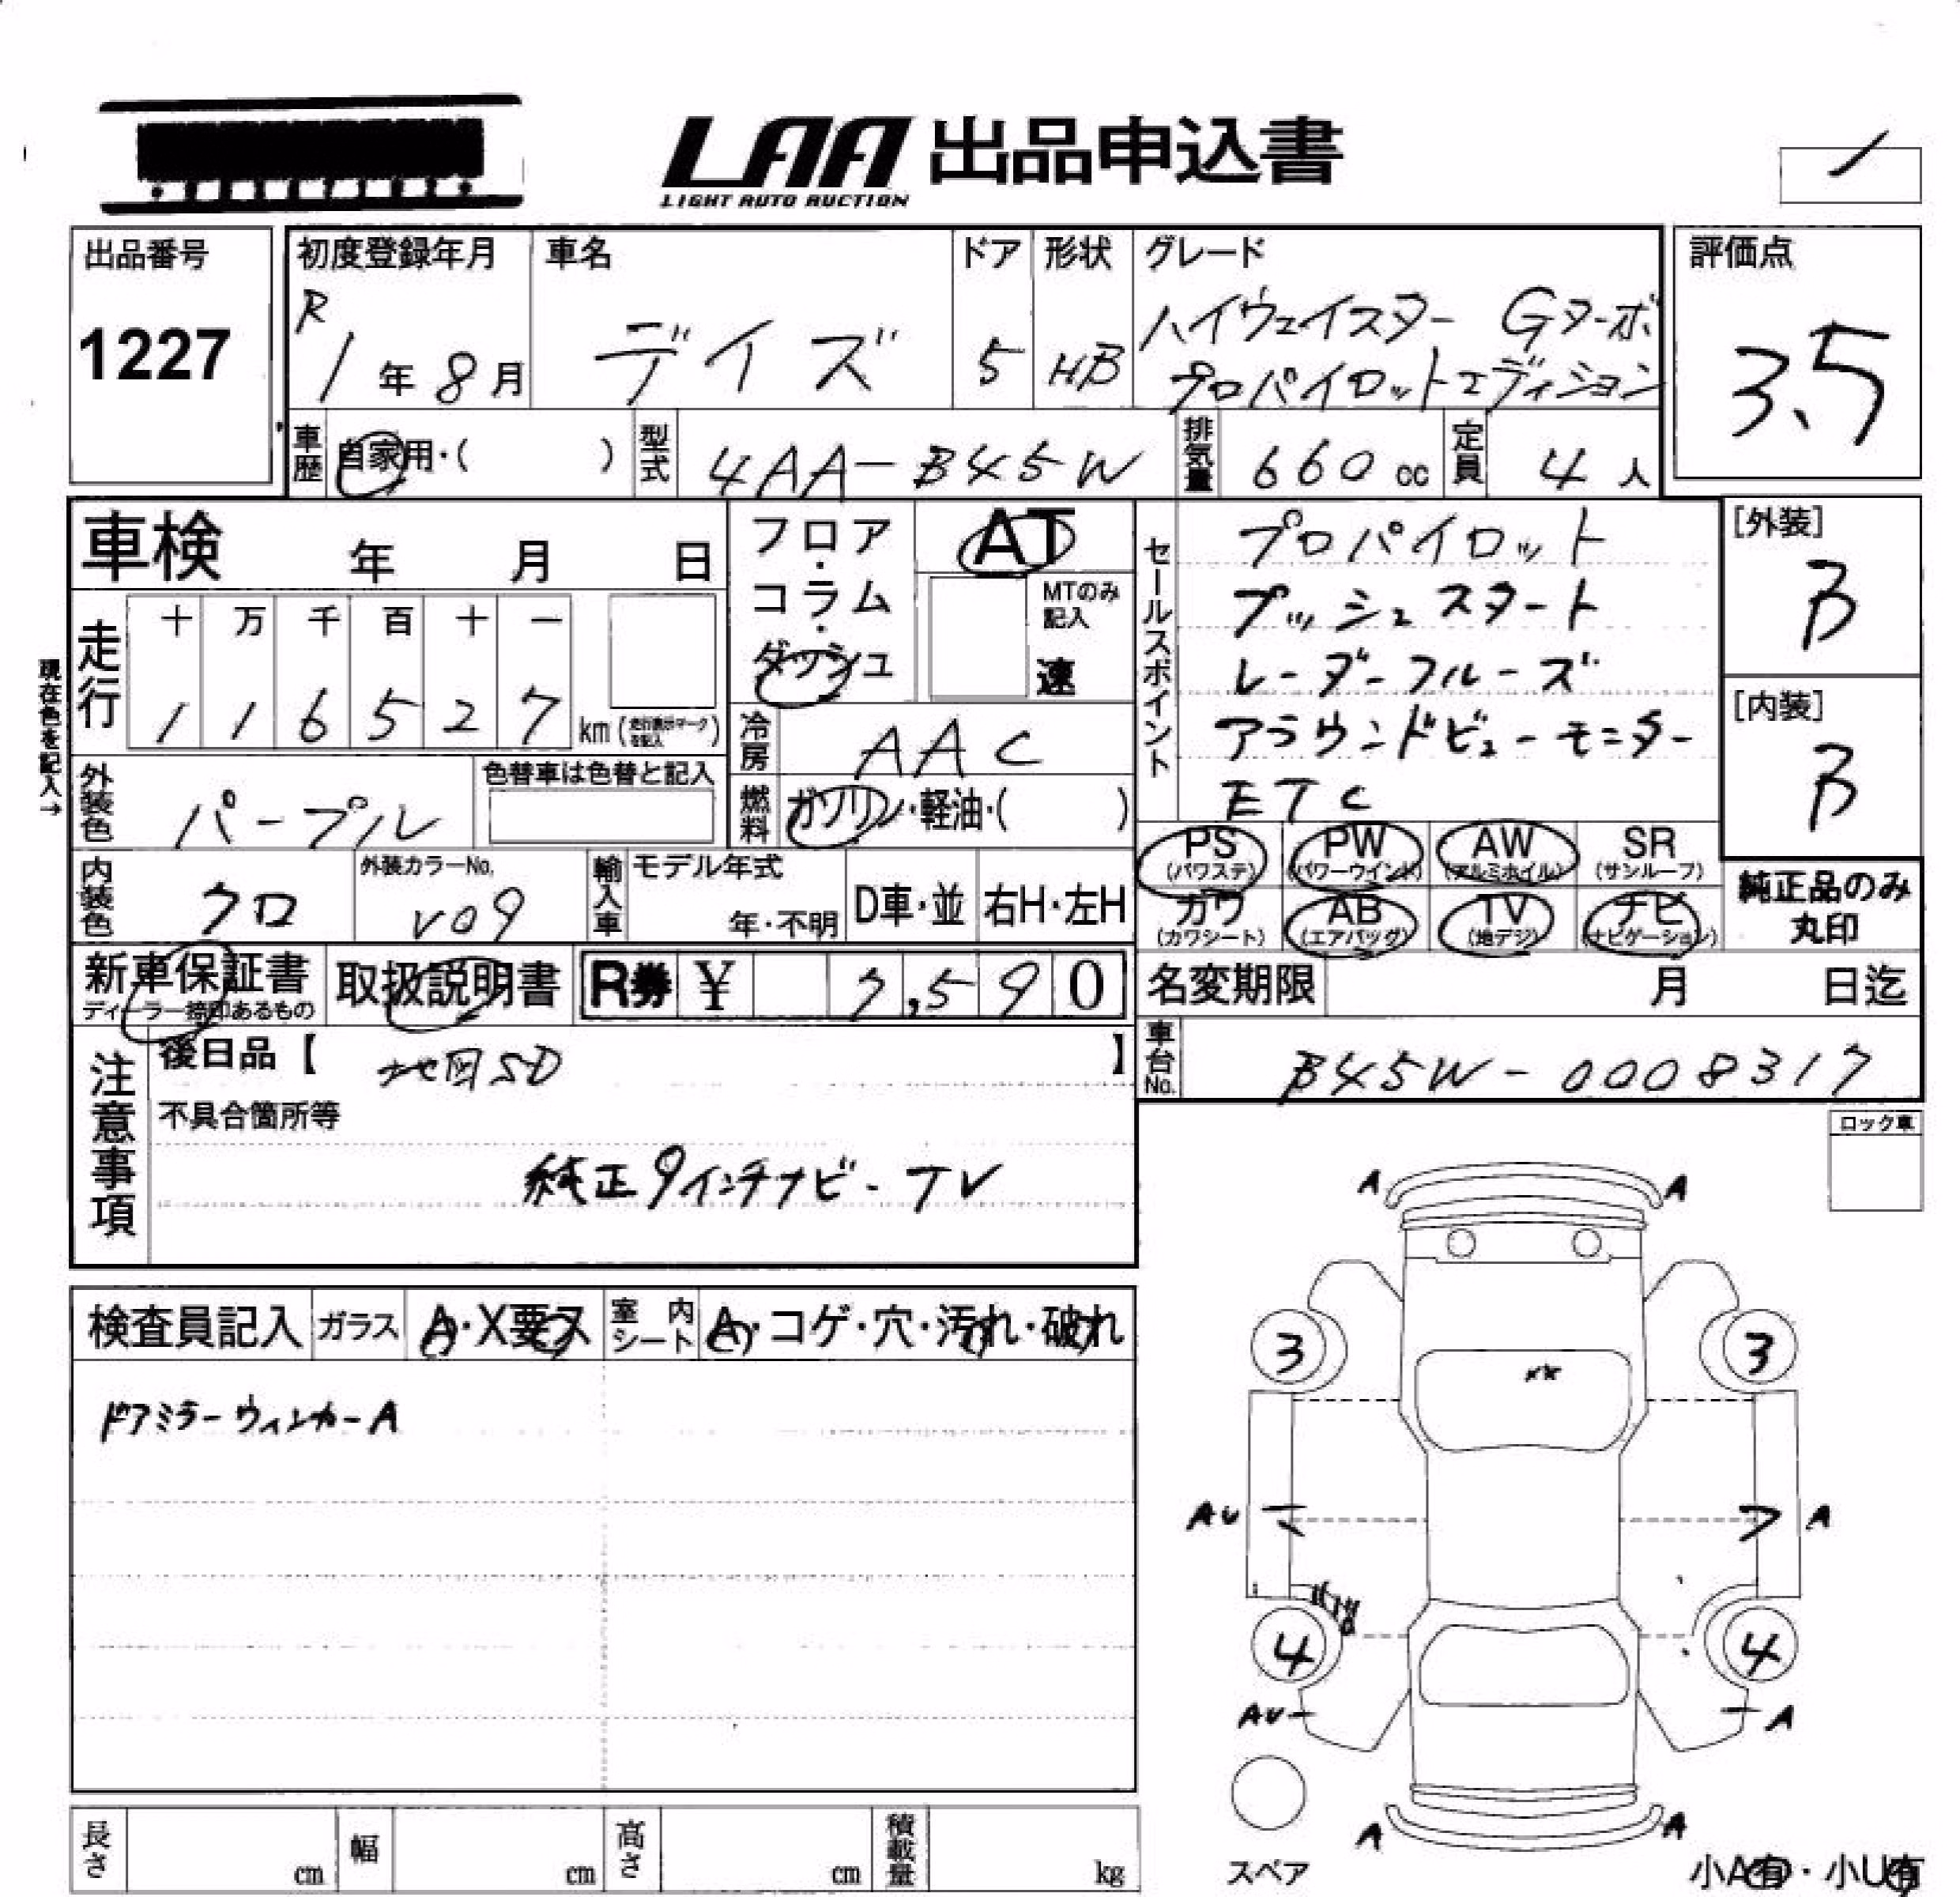 LAA 出品申込書
LIGHT AUTO AUCTION
出品番号
1227
初度登録年月
R
1年8月
車名
デイズ
ドア
5
形状
HB
グレード
ハイウェイスター Gターボ
プロパイロットエディション
評価点
3.5
車歴
自家用・( )
型式
4AA-B45W
排気量
660cc
定員
4人
車検 年 月 日
現在色を記入→
走行
十 万 千 百 十 一
1 1 6 5 2 7 km (走行表示マークを記入)
フロア・コラム・ダッシュ
AT
MTのみ
記入
速
冷房
AAC
燃料
ガソリン・軽油・( )
外装色
パープル
色替車は色替と記入
内装色
クロ
外装カラーNo.
V09
輸入車
モデル年式
年・不明
D車・並
右H・左H
セールスポイント
プロパイロット
プッシュスタート
レーダークルーズ
アラウンドビューモニター
ETC
[外装]
B
[内装]
B
PS
(パワステ)
PW
(パワーウインド)
AW
(アルミホイル)
SR
(サンルーフ)
カワ
(カワシート)
AB
(エアバッグ)
TV
(地デジ)
ナビ
(ナビゲーション)
純正品のみ
丸印
新車保証書
ディーラー捺印あるもの
取扱説明書
R券 ¥ 7,590
名変期限 月 日迄
車台No.
B45W-0008317
注意事項
後日品【 地図SD 】
不具合箇所等
純正9インチナビ-TV
ロック車
検査員記入
ガラス
A・X要ス
室内シート
A・コゲ・穴・汚れ・破れ
ドアミラーウィンカーA
A
A
3
3
xx
AU
A
4
4
AU
A
A
A
スペア
小A有・小U有
長さ
cm
幅
cm
高さ
cm
積載量
kg